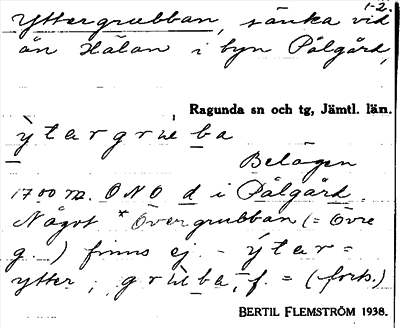 1-2.
Yttergrubban, sänka vid
ån Hälan i byn Pålgård,
Ragunda sn och tg, Jämtl. län.
ỳtargrùba
Belägen
1700 m. ONO d i Pålgård.
Något *Övergrubban (= Övre
g -) finns ej. - ỳtar =
ytter, grùba, f. = (forts.)
BERTIL FLEMSTRÖM 1938.